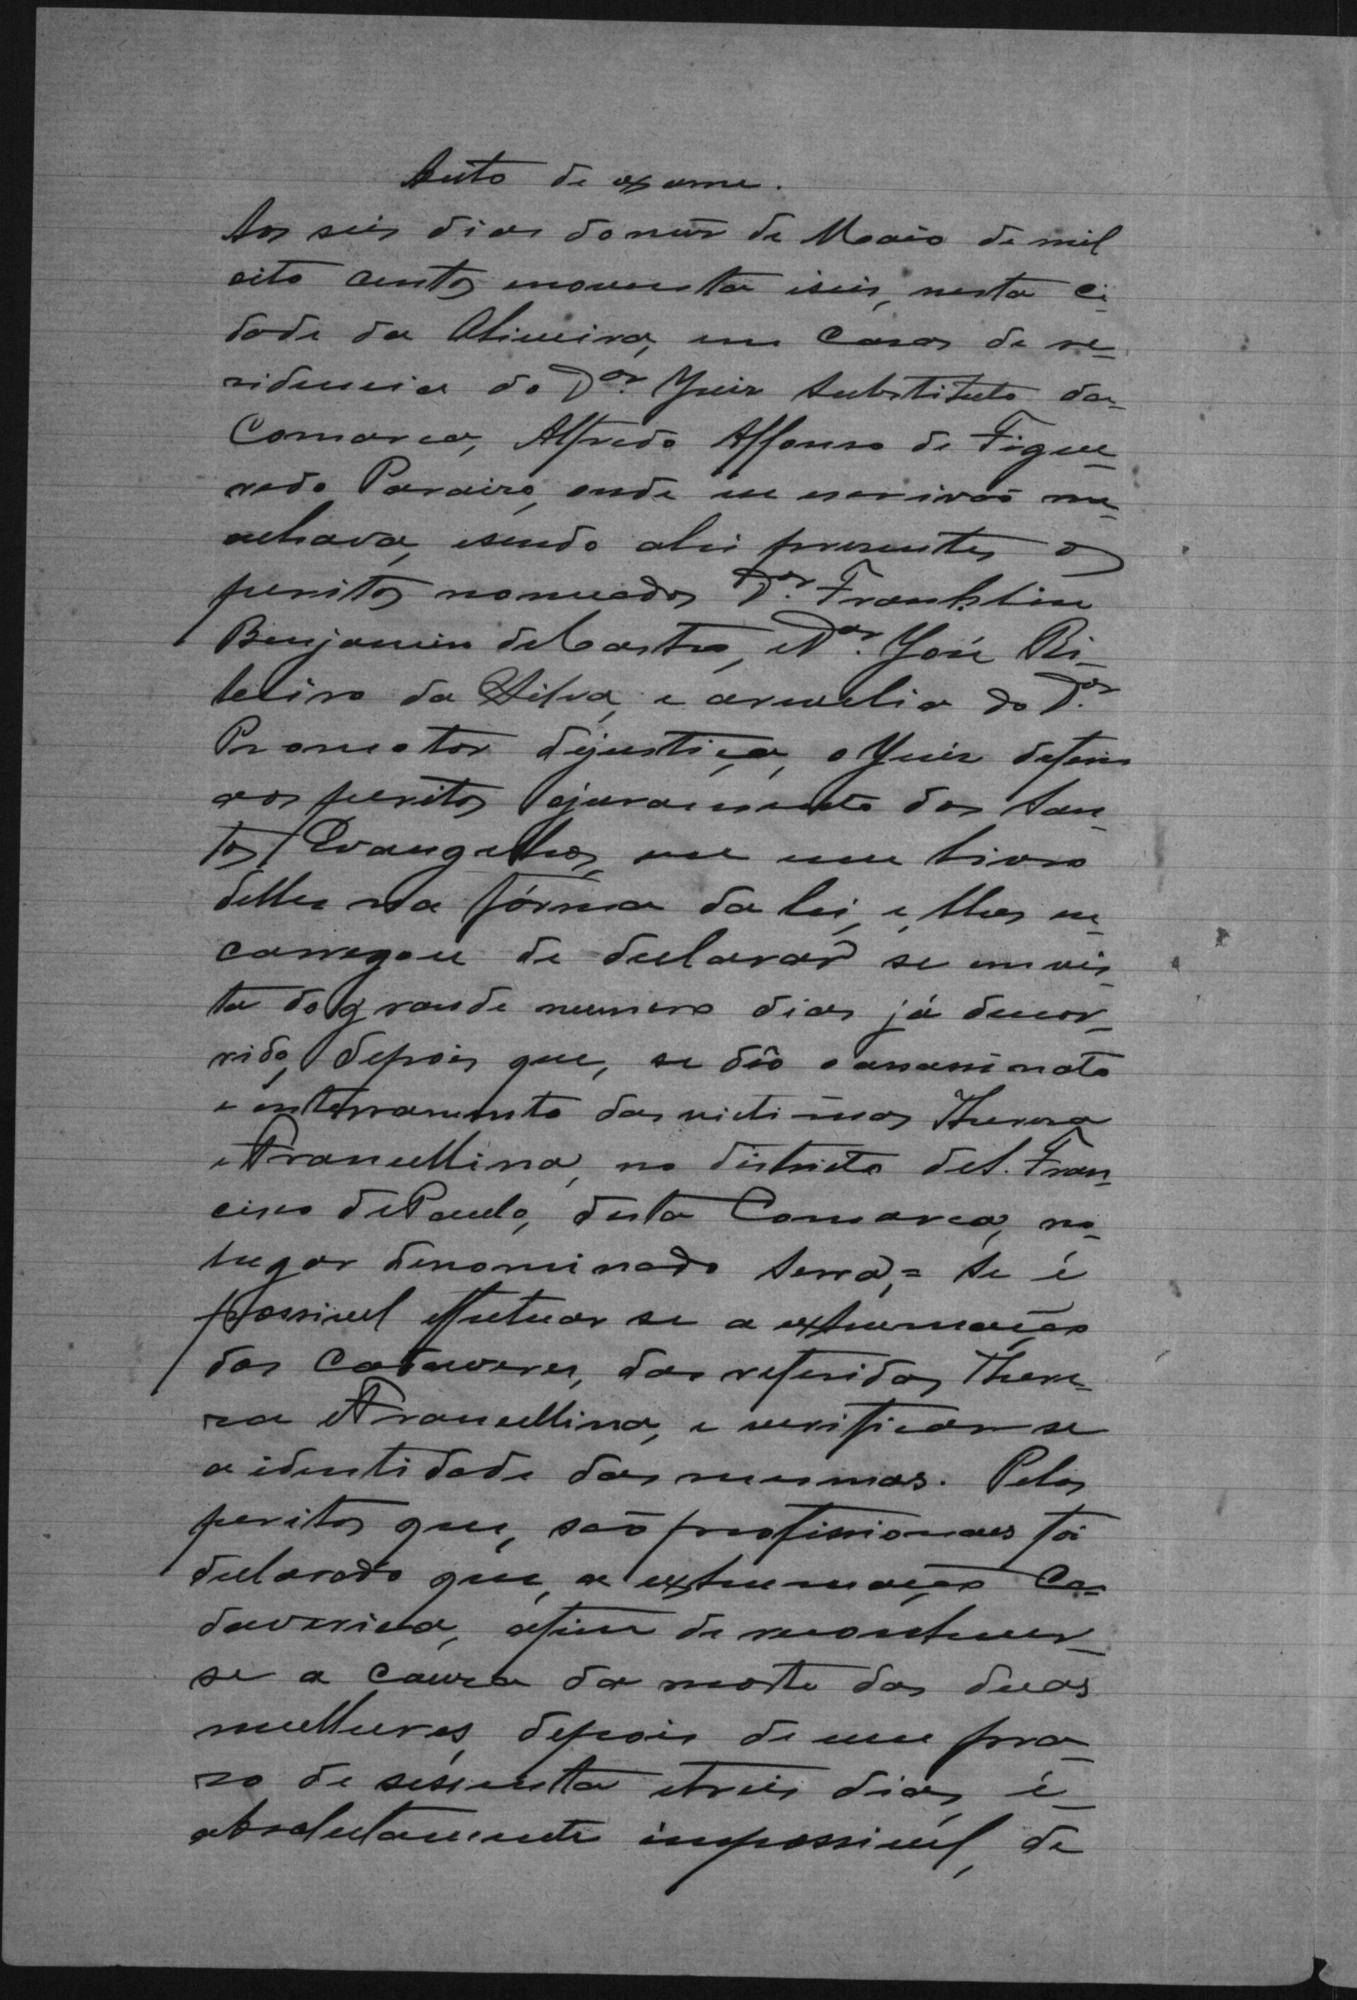 Auto de exame.
Aos seis dias do mês de Maio de mil
oito centos enoventa iseis, nesta Ci-
dade da Oliveira, em Casas de re-
sidencia do Dor. Juiz Substituto da
Comarca, Alfredo Affonso de Figue-
redo Paraizo, onde eu escrivão me
achava, esendo ahi presentes os
peritos nomeados Dor. Franklin
Benjamin deCastro, eDor. José Ri-
beiro da Silva, e arevelia do Dor.
Promotor dejustiça, o Juiz deferio
aos peritos ojuramento dos San-
tos Evangelhos, em um livro
delles na fórma da lei, e lhes en-
carregou de declarar se em vis-
ta dogrande numero dias já decor-
rido, depois que, se dêo oassassinato
e enterramento das victimas Thereza
eArancellina, no districto deS. Fran-
cisco dePaula, desta Comarca, no
lugar denominado Serra,= Se é
possivel effectuar se a exhumação
dos Cadaveres, das referidas There-
za eArancellina, e verificar se
a identidade das mesmas. Pelos
peritos que, são profissionaes foi
declarado que, a exhumação Ca-
daverica, afim de reconhecer-
se a causa da morte das duas
mulheres, depois de um pra-
zo de sessenta etreis dias, é
absolutamente impossivel, de